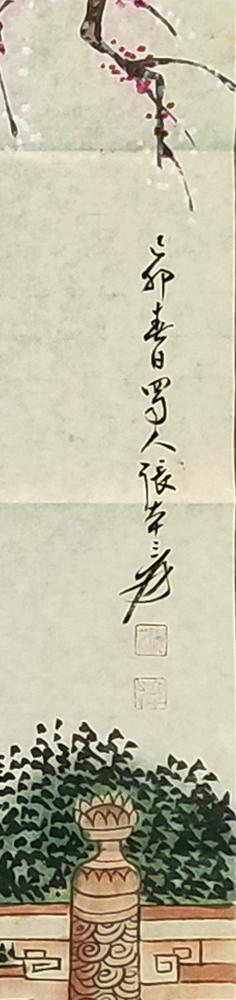 己卯春日蜀人張大千爰